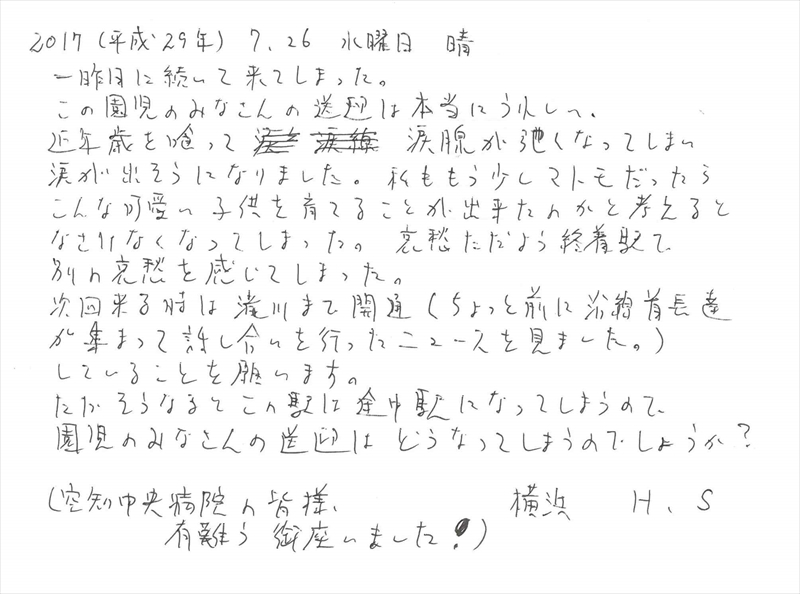 2017(平成29年) 7.26 水曜日 晴
一昨日に続いて来てしまった。
この園児のみなさんの送迎は本当にうれしい。
近年歳を喰って 涙腺が弛くなってしまい
涙が出そうになりました。私ももう少しマトモだったら
こんな可愛い子供を育てることが出来たのかと考えると
なさけなくなってしまった。哀愁ただよう終着駅で
別の哀愁を感じてしまった。
次回来る時は滝川まで開通(ちょっと前に沿線首長達
が集まって話し合いを行ったニュースを見ました。)
していることを願います。
ただそうなるとこの駅は途中駅になってしまうので、
園児のみなさんの送迎はどうなってしまうのでしょうか?
(空知中央病院の皆様、 横浜 H.S
有難う御座いました!)